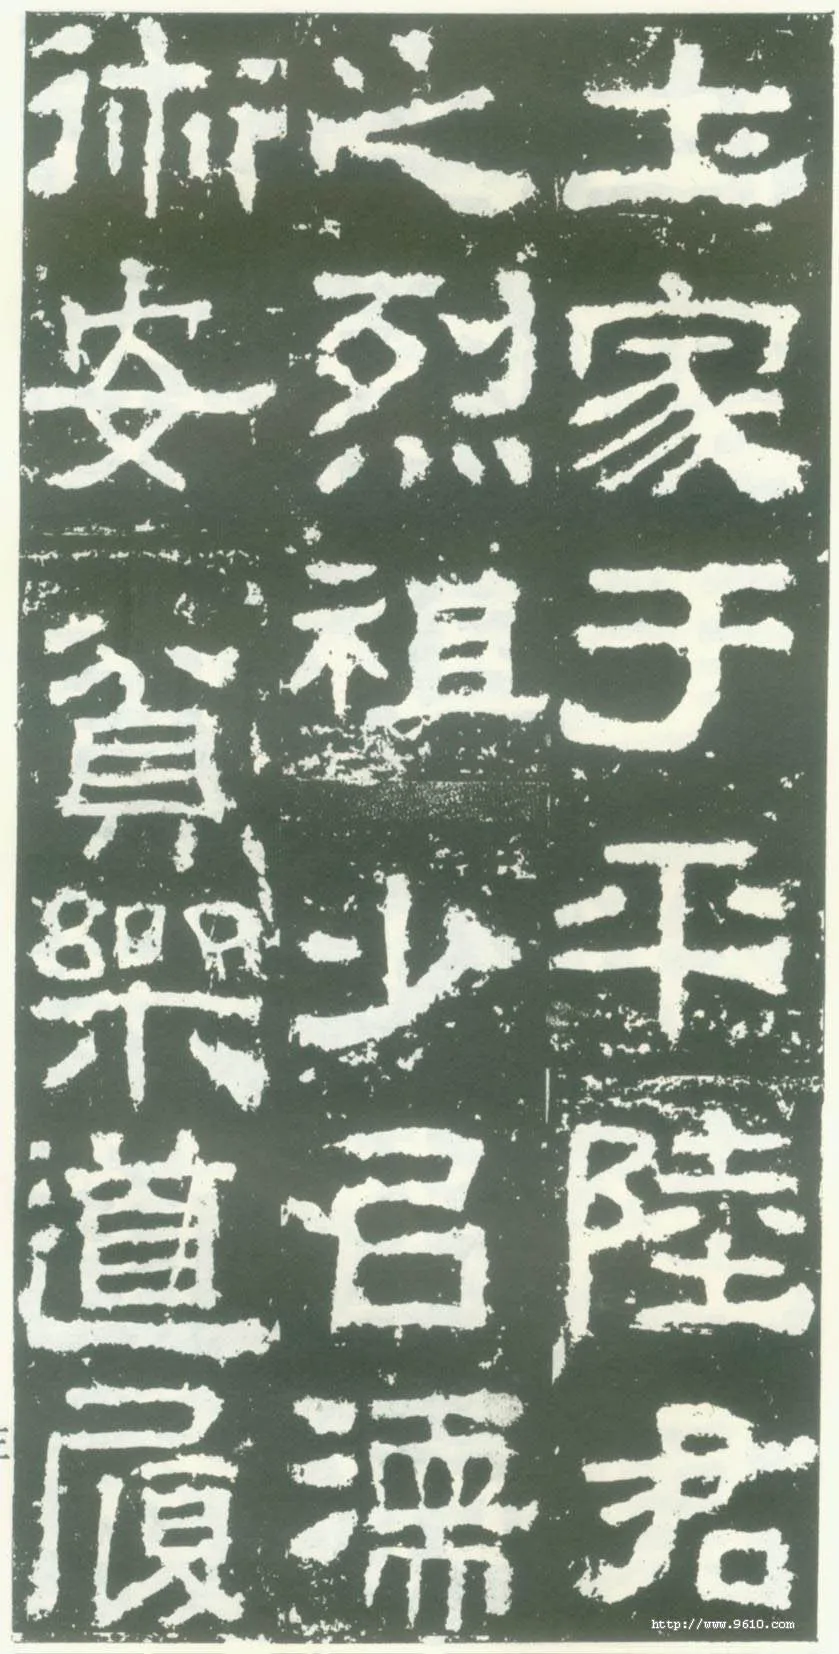 土家于平陸君
之烈祖少以濡
術安貧樂道履
http://www.9610.com